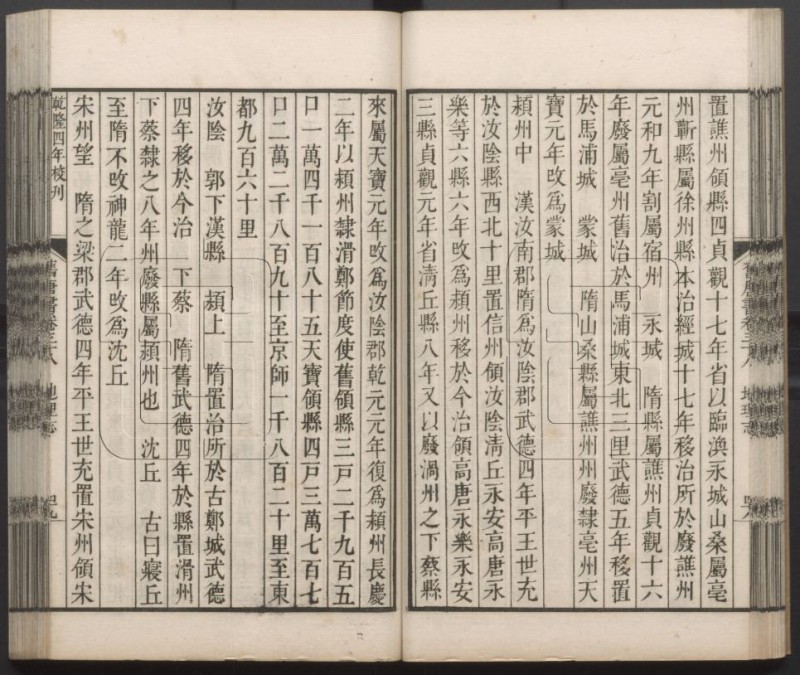 置譙州領縣四貞觀十七年省以臨渙永城山桑屬亳
州蘄縣屬徐州縣本治經城十七年移治所於廢譙州
元和九年割屬宿州　永城　隋縣屬譙州貞觀十六
年廢屬亳州舊治於馬浦城東北三里武德五年移置
於馬浦城　蒙城　隋山桑縣屬譙州州廢隸亳州天
寶元年攺爲蒙城
潁州中　漢汝南郡隋爲汝陰郡武德四年平王世充
於汝陰縣西北十里置信州領汝陰清丘永安高唐永
樂等六縣六年攺爲潁州移於今治領高唐永樂永安
三縣貞觀元年省清丘縣八年又以廢渦州之下蔡縣
來屬天寶元年攺爲汝陰郡乾元元年復爲潁州長慶
二年以潁州隸滑鄭節度使舊領縣三戸二千九百五
口一萬四千一百八十五天寶領縣四戸三萬七百七
口二萬二千八百九十至京師一千八百二十里至東
都九百六十里
汝陰　郭下漢縣　潁上　隋置治所於古鄭城武德
四年移於今治　下蔡　隋舊武德四年於縣置滑州
下蔡隸之八年州廢縣屬潁州也　沈丘　古曰寢丘
至隋不攺神龍二年攺爲沈丘
宋州望　隋之梁郡武德四年平王世充置宋州領宋
乾隆四年校刊
舊唐書卷三十八　地理志